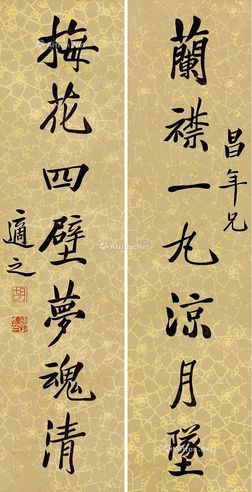 昌年兄
蘭襟一丸涼月墜
梅花四壁夢魂清
適之
胡